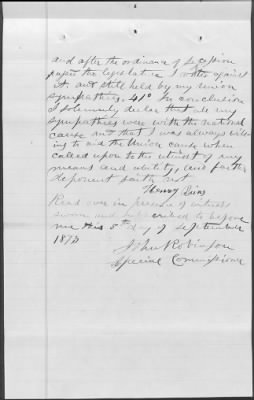 and after the ordinance of Secession
passed the legislature I voted against
it. and still held by my union
sympathies. 41º In conclusion
I solemnly declare that all my
sympathies were with the national
cause and that I was always will-
ing to aid the Union cause when
called upon to the utmost of my
means and ability, and further
deponent saith not
Henry
Read over in presence of witness
sworn and subscribed to before
me this 5th day of September
187
John Robinson
Special Commissioner